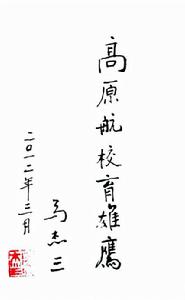 高原航校育雄鹰
马杰三
二〇一二年三月